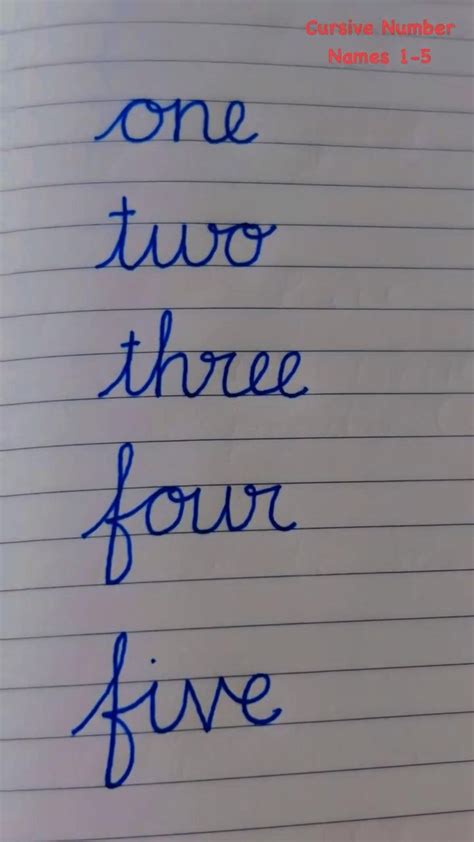 Cursive Number
Names 1-5
one
two
three
four
five